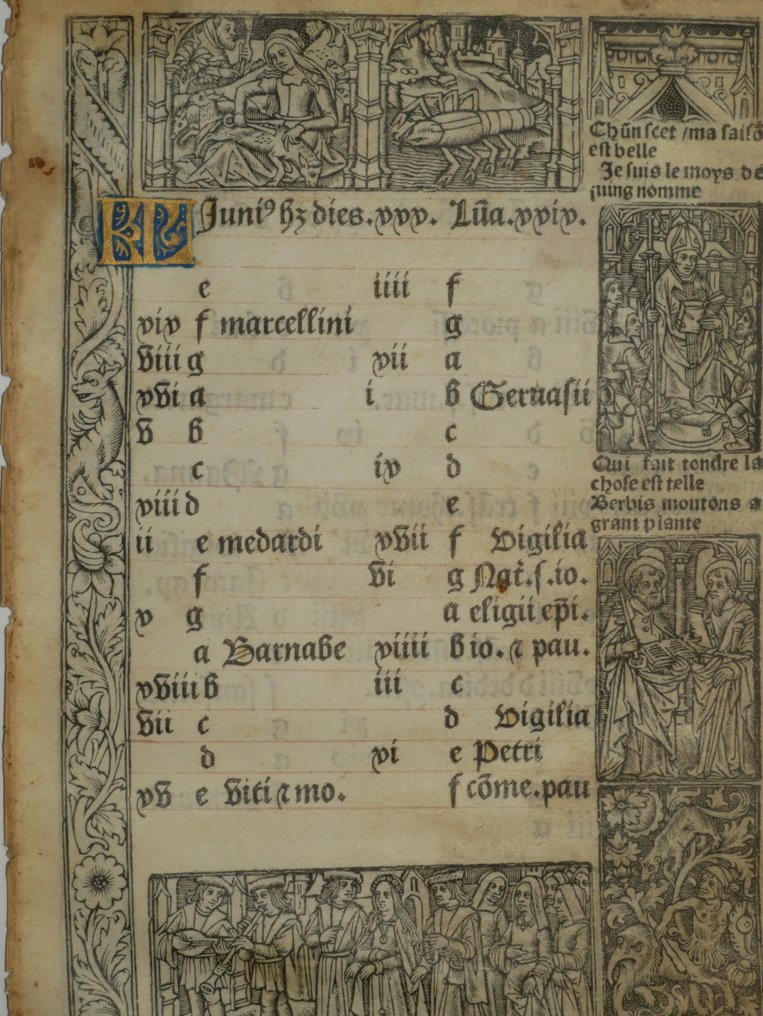 KL Juniꝰ hz dies.xxx. Lūa.xxix.
e
xix f marcellini
viii g
xvi a
v b
c
xiii d
ii e medardi
f
x g
a Barnabe
xviii b
vii c
d
xv e Viti ⁊ mo.
iiii f
g
xii a
i b Geruasii
c
ix d
e
xvii f Vigilia
vi g Nat̄.s.io.
a eligii ep̄i.
xiiii b io. ⁊ pau.
iii c
d Vigilia
xi e Petri
f cōme.pau
Chūn scet /ma saisō
est belle
Je suis le moys de
juing nomme
Qui fait tondre la
chose est telle
Berbis moutons a
grant plante